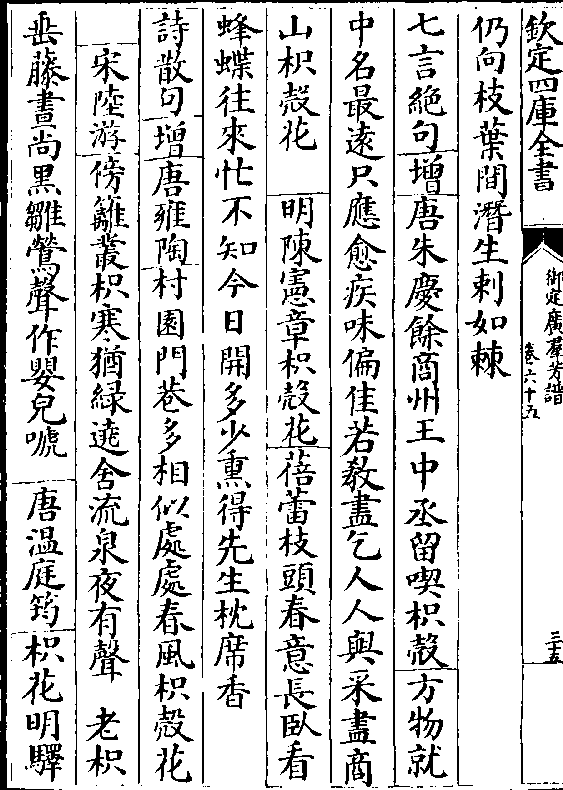 欽定四庫全書
御定廣羣芳譜
卷六十五
三十五
仍向枝葉間潛生刺如棘
七言絶句增唐朱慶餘商州王中丞留喫枳殻方物就
中名最逺只應愈疾味偏佳若教盡乞人人與采盡商
山枳殻花　明陳憲章枳殻花蓓蕾枝頭春意長卧看
蜂蝶往來忙不知今日開多少熏得先生枕席香
詩散句增唐雍陶村園門巷多相似處處春風枳殻花
宋陸游傍籬叢枳寒猶緑遶舍流泉夜有聲　老枳
垂藤晝尚黒雛鶯聲作嬰兒嗁　唐溫庭筠枳花明驛